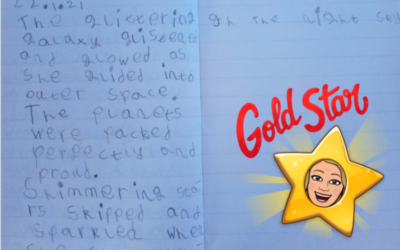 22.11.21
The glittering
galaxy glistened
and glowed as
she glided into
outer space.
The planets
were packed
perfectly and
proud.
Shimmering sta
rs skipped and
sparkled
In the night
Gold Star